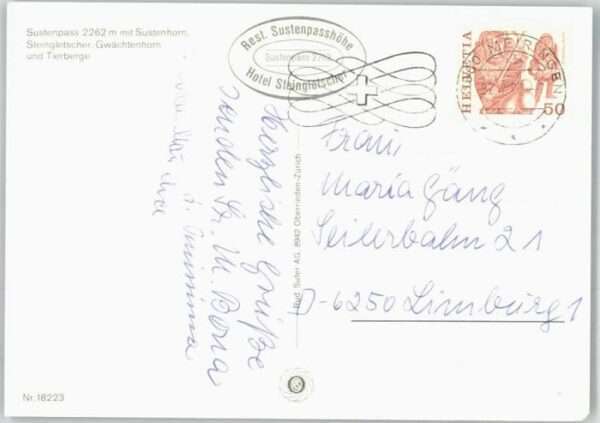 Sustenpass 2262 m mit Sustenhorn,
Steingletscher, Gwächtenhorn
und Tierberge
Rest. Sustenpasshöhe
Sustenpass 2262
Hotel Steingletscher
HELVETIA
50
MEIRINGEN
Herzliche Grüße
von den Sr. M. Bona
Frau
Maria Gäng
Seilerbahn 21
D-6250 Limburg 1
Rud. Suter AG, 8942 Oberrieden-Zürich
Nr. 18223